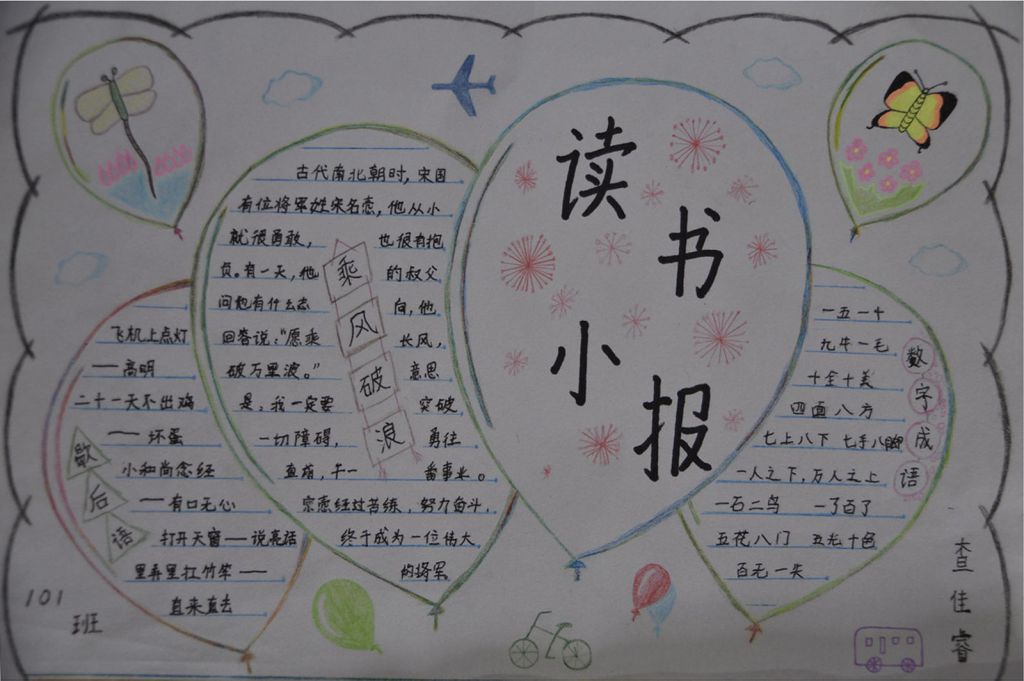 读书小报
歇后语
飞机上点灯
——高明
二十一天不出鸡
——坏蛋
小和尚念经
——有口无心
打开天窗——说亮话
里弄里扛竹竿——
直来直去
乘风破浪
古代南北朝时，宋国
有位将军姓宋名悫，他从小
就很勇敢，也很有抱
负。有一天，他的叔父
问他有什么志向，他
回答说：“愿乘长风，
破万里浪。”意思
是，我一定要突破
一切障碍，勇往
直前，干一番事业。
宗悫经过苦练，努力奋斗，
终于成为一位伟大
的将军
数字成语
一五一十
九牛一毛
十全十美
四面八方
七上八下 七手八脚
一人之下，万人之上
一石二鸟 一了百了
五花八门 五光十色
百无一失
101
班
查佳睿